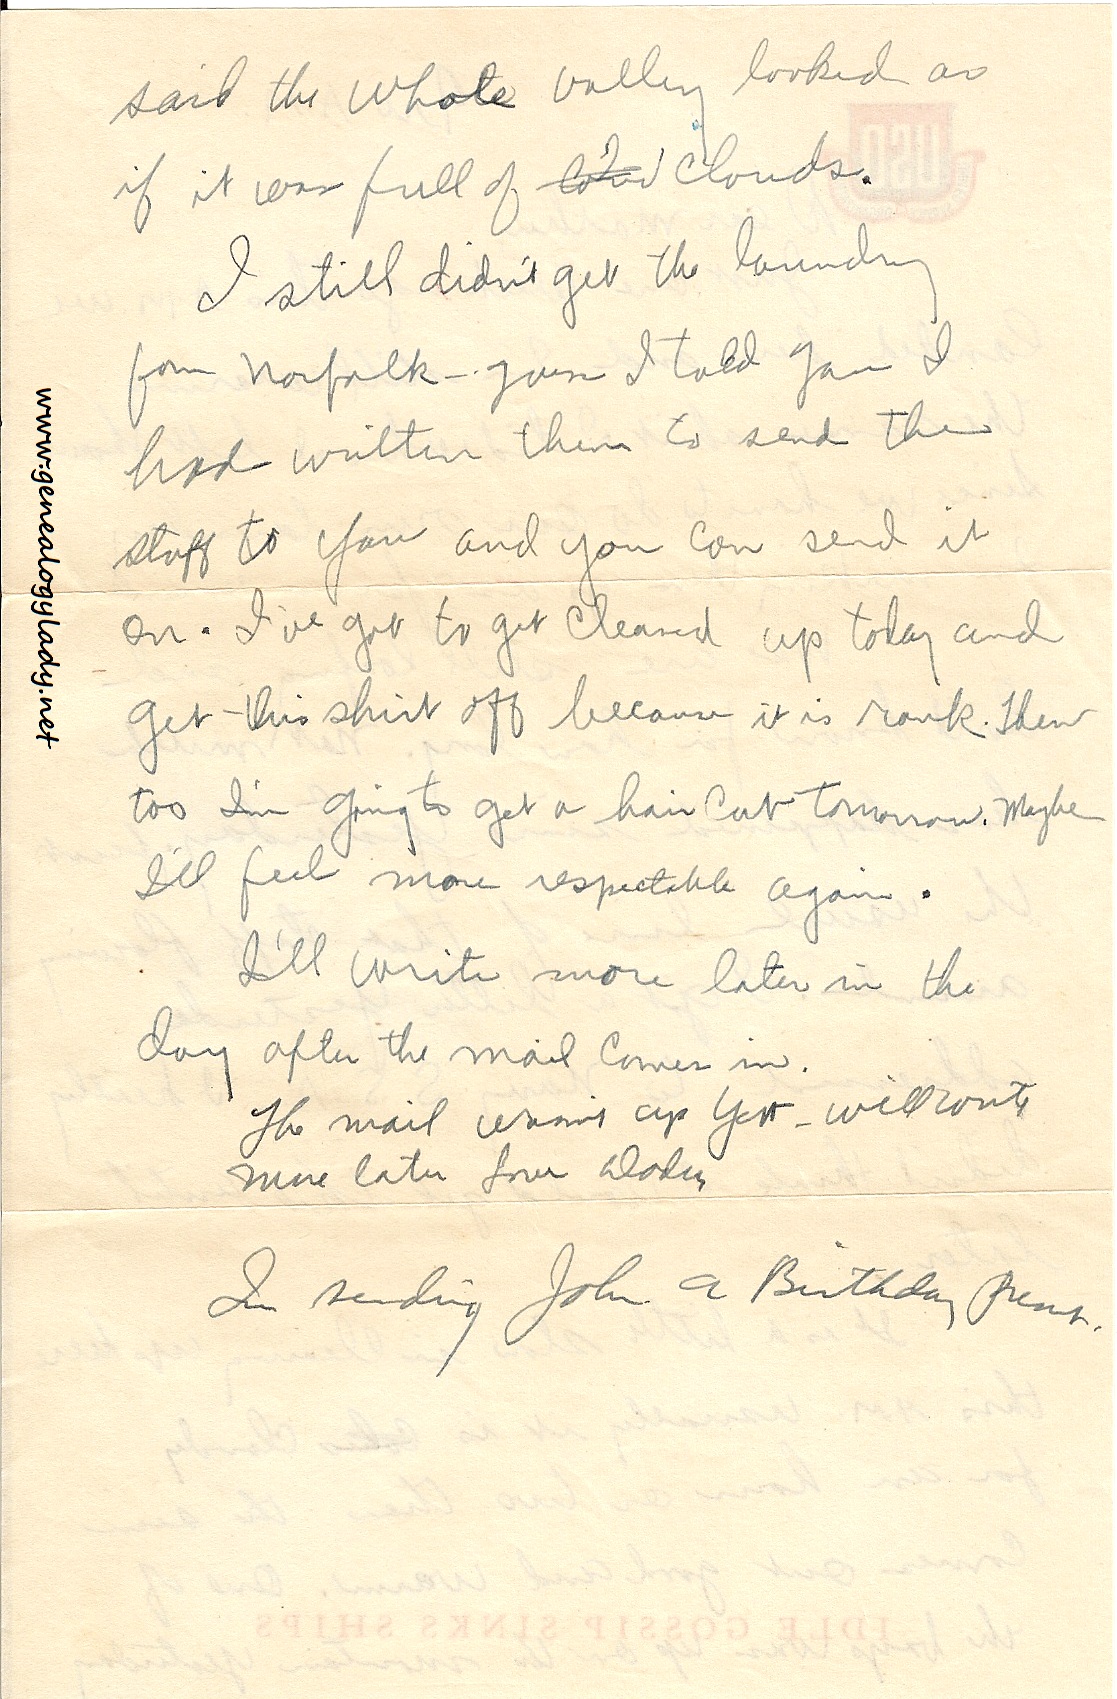 said the whole valley looked as
if it was full of clouds.
I still didn't get the laundry
from Norfolk - guess I told you I
had written them to send the
stuff to you and you can send it
on. I've got to get cleaned up today and
get this shirt off because it is rank. Then
too I'm going to get a hair cut tomorrow. Maybe
I'll feel more respectable again.
I'll write more later in the
day after the mail comes in.
The mail isn't up yet - will write
more later Love Daddy
I'm sending John a Birthday present.
www.genealogylady.net
USO
IDLE GOSSIP SINKS SHIPS